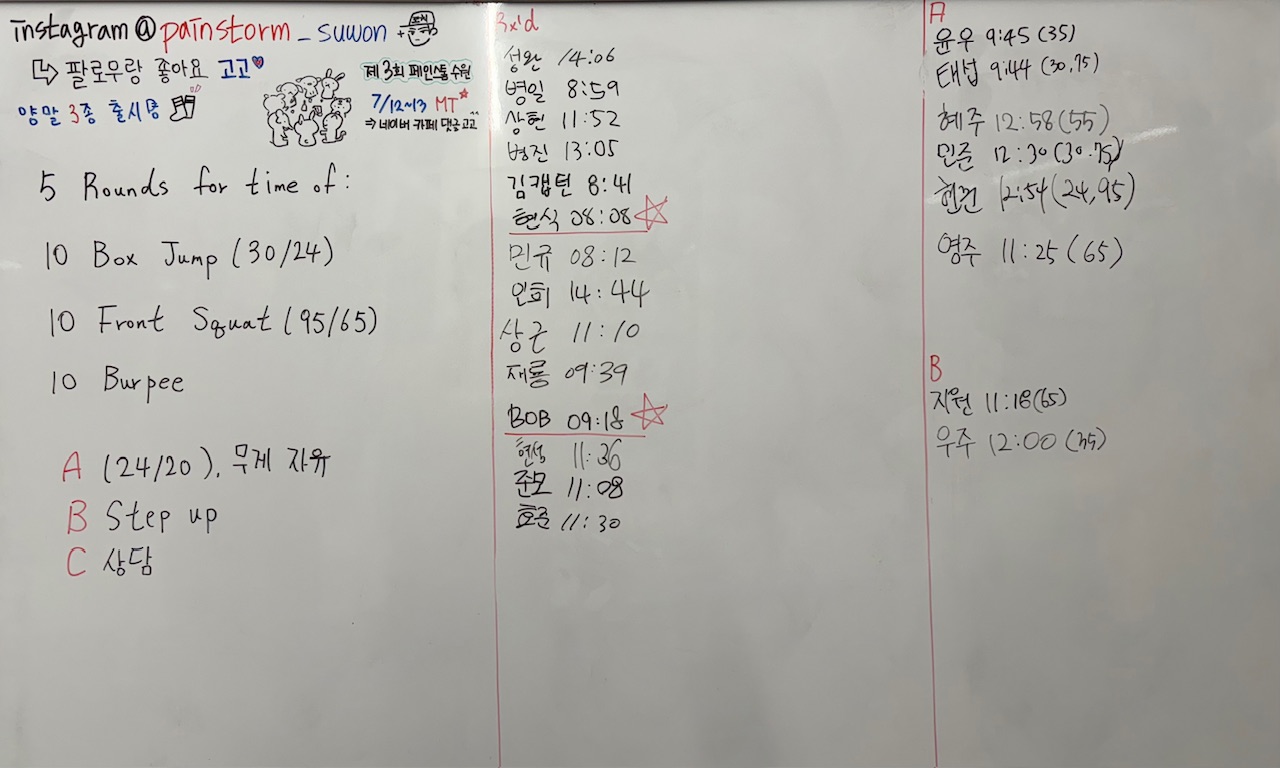 instagram@painstorm_suwon
팔로우랑 좋아요 고고
양말 3종 출시
제3회 페인스톰 수원
7/12~13 MT
⇒ 네이버 카페 댓글 고고
5 Rounds for time of:
10 Box Jump (30/24)
10 Front Squat (95/65)
10 Burpee
A (24/20), 무게 자유
B Step up
C 상담
Rx'd
성완 14:06
병일 8:59
상헌 11:52
병진 13:05
김캡틴 8:41
현식 08:08
민규 08:12
인희 14:44
상근 11:10
재룡 09:39
BOB 09:18
현성 11:36
준모 11:08
효준 11:30
A
윤우 9:45 (35)
태섭 9:44 (30,75)
혜주 12:58 (55)
민준 12:30 (30.75)
12:54 (24,95)
영주 11:25 (65)
B
지원 11:18 (65)
우주 12:00 (35)